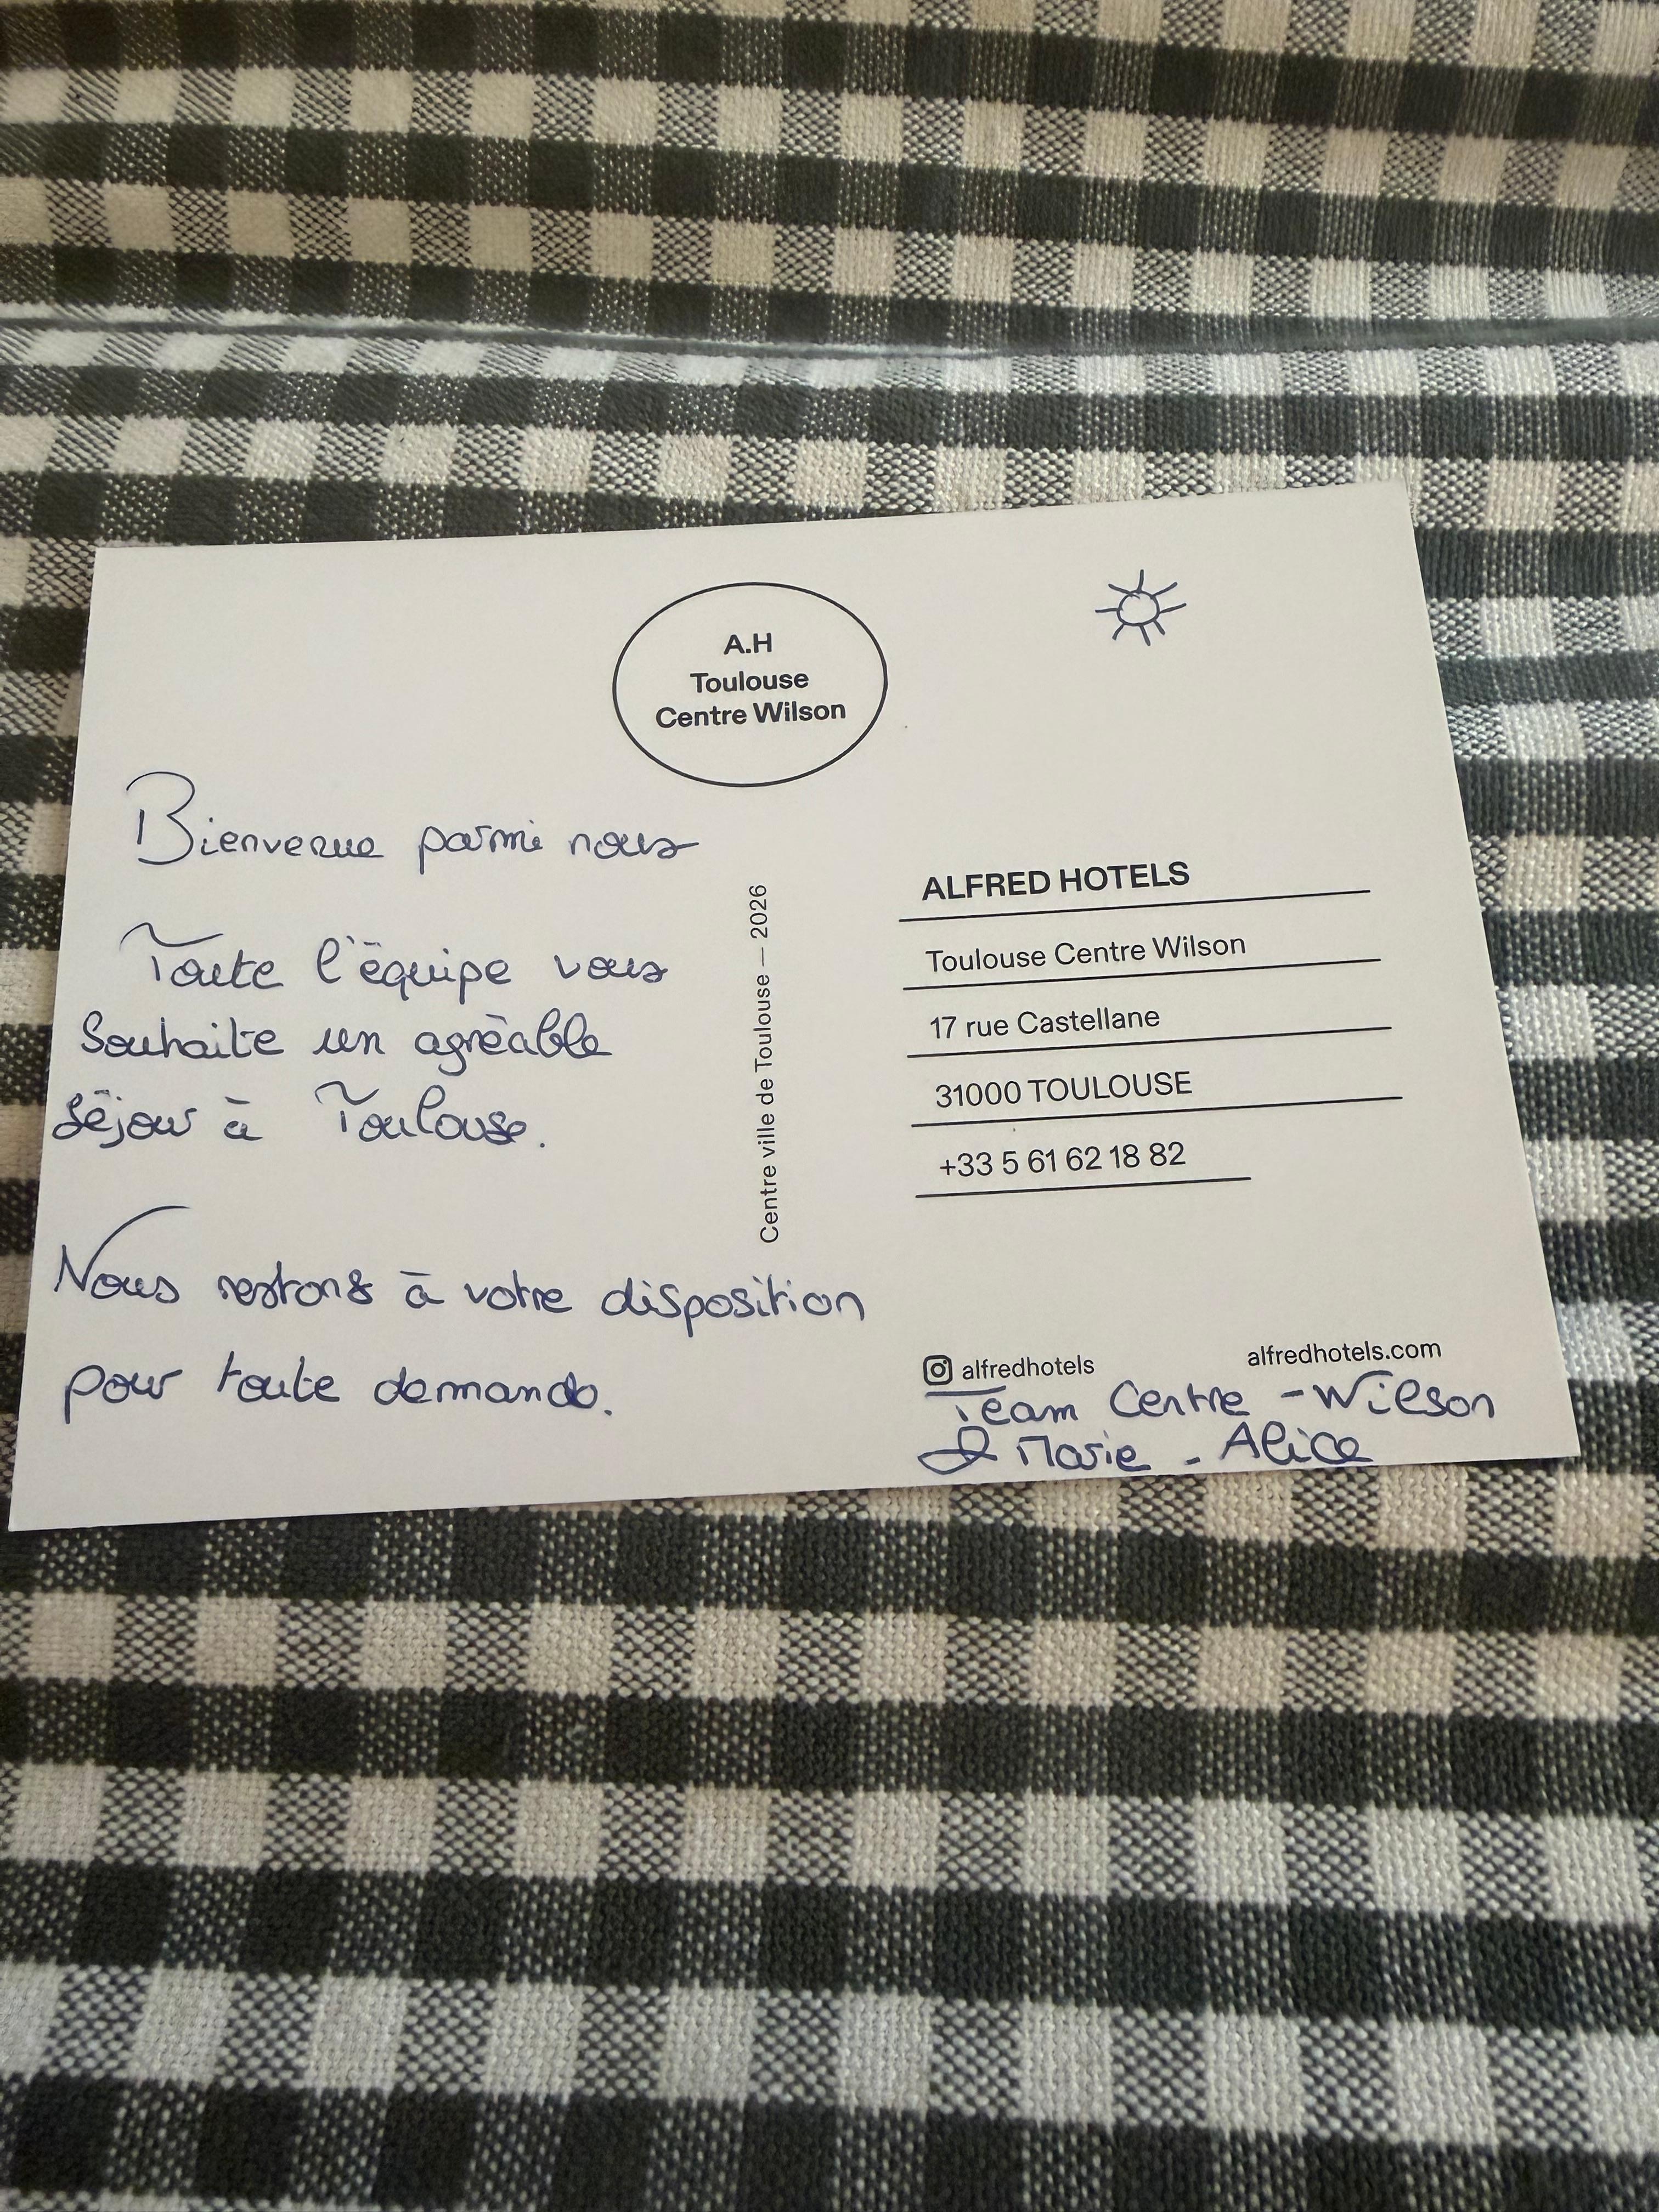 A.H
Toulouse
Centre Wilson
Bienvenue parmi nous
Toute l'équipe vous
Souhaite un agréable
séjour à Toulouse.
Nous restons à votre disposition
pour toute demande.
Centre ville de Toulouse — 2026
ALFRED HOTELS
Toulouse Centre Wilson
17 rue Castellane
31000 TOULOUSE
+33 5 61 62 18 82
alfredhotels
alfredhotels.com
Team Centre - Wilson
& Marie - Alice